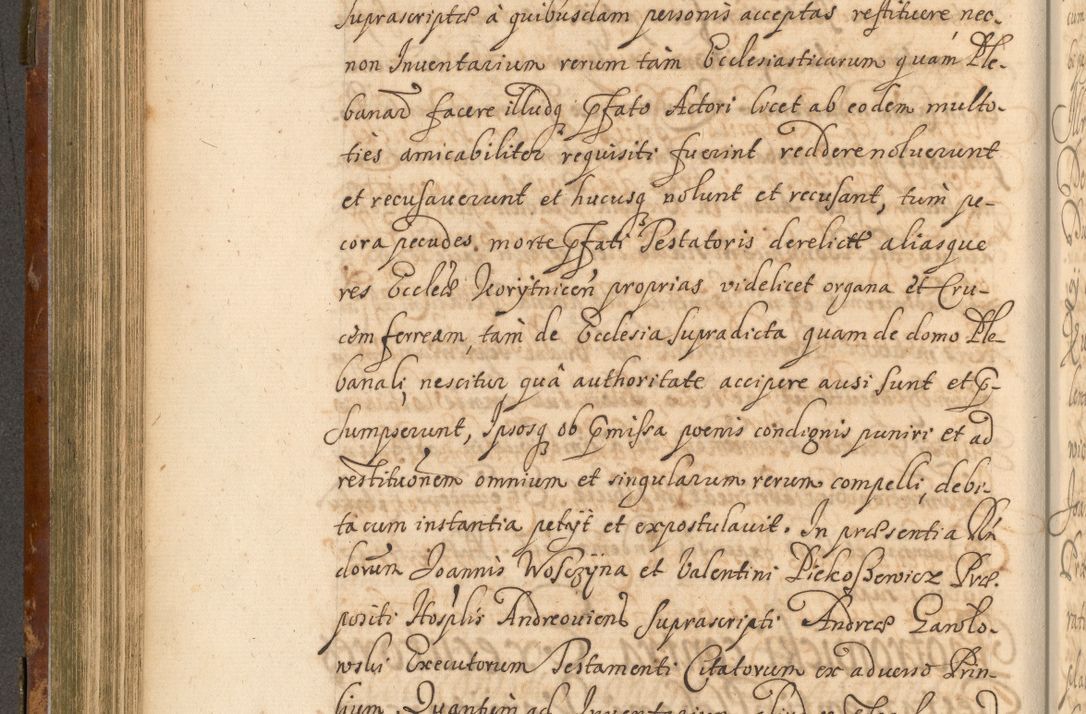 suprascriptæ à quibusdam personis acceptas restituere nec-
non Inventarium rerum tàm Ecclesiasticarum quàm Ple-
banar facere illudq pfato Actori licet ab eodem multo-
ties amicabiliter requisiti fuerint reddere noluerunt
et recusauerunt et hucusq nolunt et recusant, tum pe-
cora pecudes morte pfati Testatoris derelictæ aliasque
res Eccleæ Korytnicen proprias videlicet organa et Cru-
cem ferream, tam de Ecclesia supradicta quam de domo Ple-
banali, nescitur quâ authoritate accipere ausi sunt et p-
sumpserunt, Ipsosq ob pmissa poenis condignis puniri et ad
restitutionem omnium et singularum rerum compelli, debi-
ta cum instantia petijt et expostulauit. In præsentia
dorum Joannis Wosczÿna et Valentini Piekoszewicz Præ-
positi Hosplis Andreouiens suprascripti Andreæ Garolo-
wski Executorum Testamenti Citatorum ex aduerso Prin-
lium. Quantum ad Inventarium